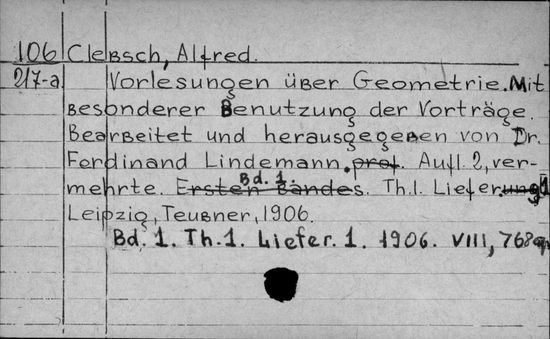 106 Clebsch, Alfred.
217-a Vorlesungen über Geometrie. Mit
besonderer Benutzung der Vorträge.
Bearbeitet und herausgegeben von Dr.
Ferdinand Lindemann. prof. Aufl. 2, ver-
mehrte. Ersten Bandes. Bd. 1. Th. 1. Lieferung 1
Leipzig, Teubner, 1906.
Bd. 1. Th. 1. Liefer. 1. 1906. VIII, 768